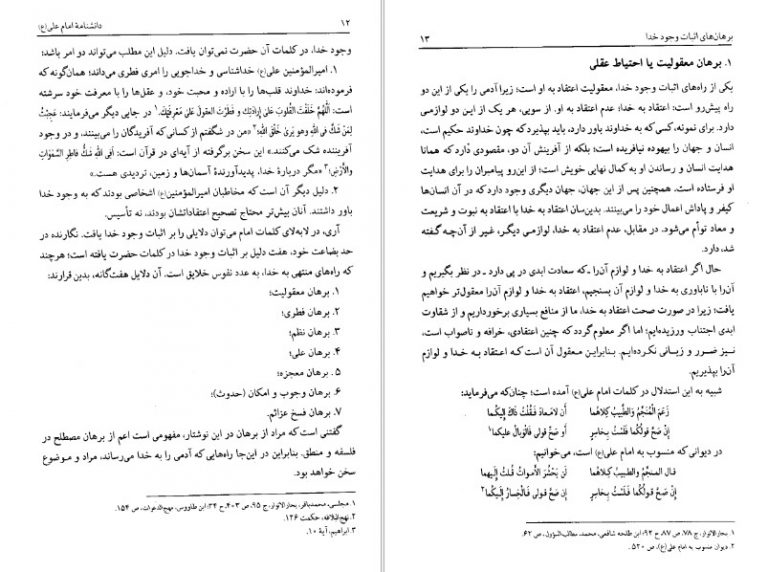 ۱۲ دانشنامهٔ امام علی(ع)
وجود خدا، در کلمات آن حضرت نمی‌توان یافت. دلیل این مطلب می‌تواند دو امر باشد:
۱. امیرالمؤمنین(ع) خداشناسی و خداجویی را امری فطری می‌داند؛ همان‌گونه که
فرموده‌اند: خداوند قلب‌ها را با اراده و محبت خود، و عقل‌ها را با معرفت خود سرشته
است: اَللّهُمَّ خَلَقْتَ القُلوبَ عَلىٰ إرادَتِكَ و فَطَرْتَ العقولَ عَلىٰ مَعرفتِكَ.۱ در جایی دیگر می‌فرمایند: عَجِبْتُ
لِمَنْ شَكَّ فى اللّهِ وهو يَرىٰ خَلْقَ اللّهِ؛۲ «من در شگفتم از کسانی که آفریدگان را می‌بینند، و در وجود
آفریننده شک می‌کنند.» این سخن برگرفته از آیه‌ای در قرآن است: أفِى اللّهِ شَكٌّ فاطِرِ السَّمٰوَاتِ
والأرْضِ؛۳ «مگر دربارهٔ خدا، پدیدآورندهٔ آسمان‌ها و زمین، تردیدی هست.»
۲. دلیل دیگر آن است که مخاطبان امیرالمؤمنین(ع) اشخاصی بودند که به وجود خدا
باور داشتند. آنان بیش‌تر محتاج تصحیح اعتقاداتشان بودند، نه تأسیس.
آری، در لابه‌لای کلمات امام می‌توان دلایلی را بر اثبات وجود خدا یافت. نگارنده در
حد بضاعت خود، هفت دلیل بر اثبات وجود خدا در کلمات حضرت یافته است؛ هرچند
که راه‌های منتهی به خدا، به عدد نفوس خلایق است. آن دلایل هفت‌گانه، بدین قرارند:
۱. برهان معقولیت؛
۲. برهان فطری؛
۳. برهان نظم؛
۴. برهان علی؛
۵. برهان معجزه؛
۶. برهان وجوب و امکان (حدوث)؛
۷. برهان فسخ عزائم.
گفتنی است که مراد از برهان در این نوشتار، مفهومی است اعم از برهان مصطلح در
فلسفه و منطق. بنابراین در این‌جا راه‌هایی که آدمی را به خدا می‌رساند، مراد و موضوع
سخن خواهد بود.
۱. مجلسی، محمدباقر، بحارالانوار، ج ۹۵، ص ۴۰۳، ح ۳۴؛ ابن طاووس، مهج‌الدعوات، ص ۱۵۴.
۲. نهج‌البلاغه، حکمت ۱۲۶.
۳. ابراهیم، آیهٔ ۱۰.
برهان‌های اثبات وجود خدا ۱۳
۱. برهان معقولیت یا احتیاط عقلی
یکی از راه‌های اثبات وجود خدا، معقولیت اعتقاد به او است؛ زیرا آدمی را یکی از این دو
راه پیش‌رو است: اعتقاد به خدا؛ عدم اعتقاد به او. از سویی، هر یک از این دو لوازمی
دارد. برای نمونه، کسی که به خداوند باور دارد، باید بپذیرد که چون خداوند حکیم است،
انسان و جهان را بیهوده نیافریده است؛ بلکه از آفرینش آن دو، مقصودی دارد که همانا
هدایت انسان و رساندن او به کمال نهایی خویش است؛ از این‌رو پیامبران را برای هدایت
او فرستاده است. همچنین پس از این جهان، جهان دیگری وجود دارد که در آن انسان‌ها
کیفر و پاداش اعمال خود را می‌بینند. بدین‌سان اعتقاد به خدا با اعتقاد به نبوت و شریعت
و معاد توأم می‌شود. در مقابل، عدم اعتقاد به خدا، لوازمی دیگر، غیر از آن‌چه گفته
شد، دارد.
حال اگر اعتقاد به خدا و لوازم آن‌را ـ که سعادت ابدی در پی دارد ـ در نظر بگیریم و
آن‌را با ناباوری به خدا و لوازم آن بسنجیم، اعتقاد به خدا و لوازم آن‌را معقول‌تر خواهیم
یافت؛ زیرا در صورت صحت اعتقاد به خدا، ما از منافع بسیاری برخورداریم و از شقاوت
ابدی اجتناب ورزیده‌ایم؛ اما اگر معلوم گردد که چنین اعتقادی، خرافه و ناصواب است،
نیز ضرر و زیانی نکرده‌ایم. بنابراین معقول آن است که اعتقاد به خدا و لوازم
آن‌را بپذیریم.
شبیه به این استدلال در کلمات امام علی(ع) آمده است؛ چنان‌که می‌فرماید:
زَعَمَ المُنَجِّمُ والطَّبِيبُ كِلاهُما أن لامَعادَ فَقُلْتُ ذاكَ إلَيكُما
إنْ صَحَّ قَوْلُكُما فَلَسْتُ بِخاسِرٍ أو صَحَّ قولى فَالْوَبالُ عَلَيكُما۱
در دیوانی که منسوب به امام علی(ع) است، می‌خوانیم:
قال المنجِّمُ والطبيبُ كِلاهُما لَن يُحْشَرَ الأمواتُ قُلتُ إلَيهِما
إنْ صَحَّ قولُكُما فَلَسْتُ بِخاسِرٍ إن صَحَّ قولى فَالخِسارُ إلَيْكُما۲
۱. بحارالانوار، ج ۷۸، ص ۸۷، ح ۹۲؛ ابن طلحه شافعی، محمد، مطالب‌السؤول، ص ۶۲.
۲. دیوان منسوب به امام علی(ع)، ص ۵۲۰.